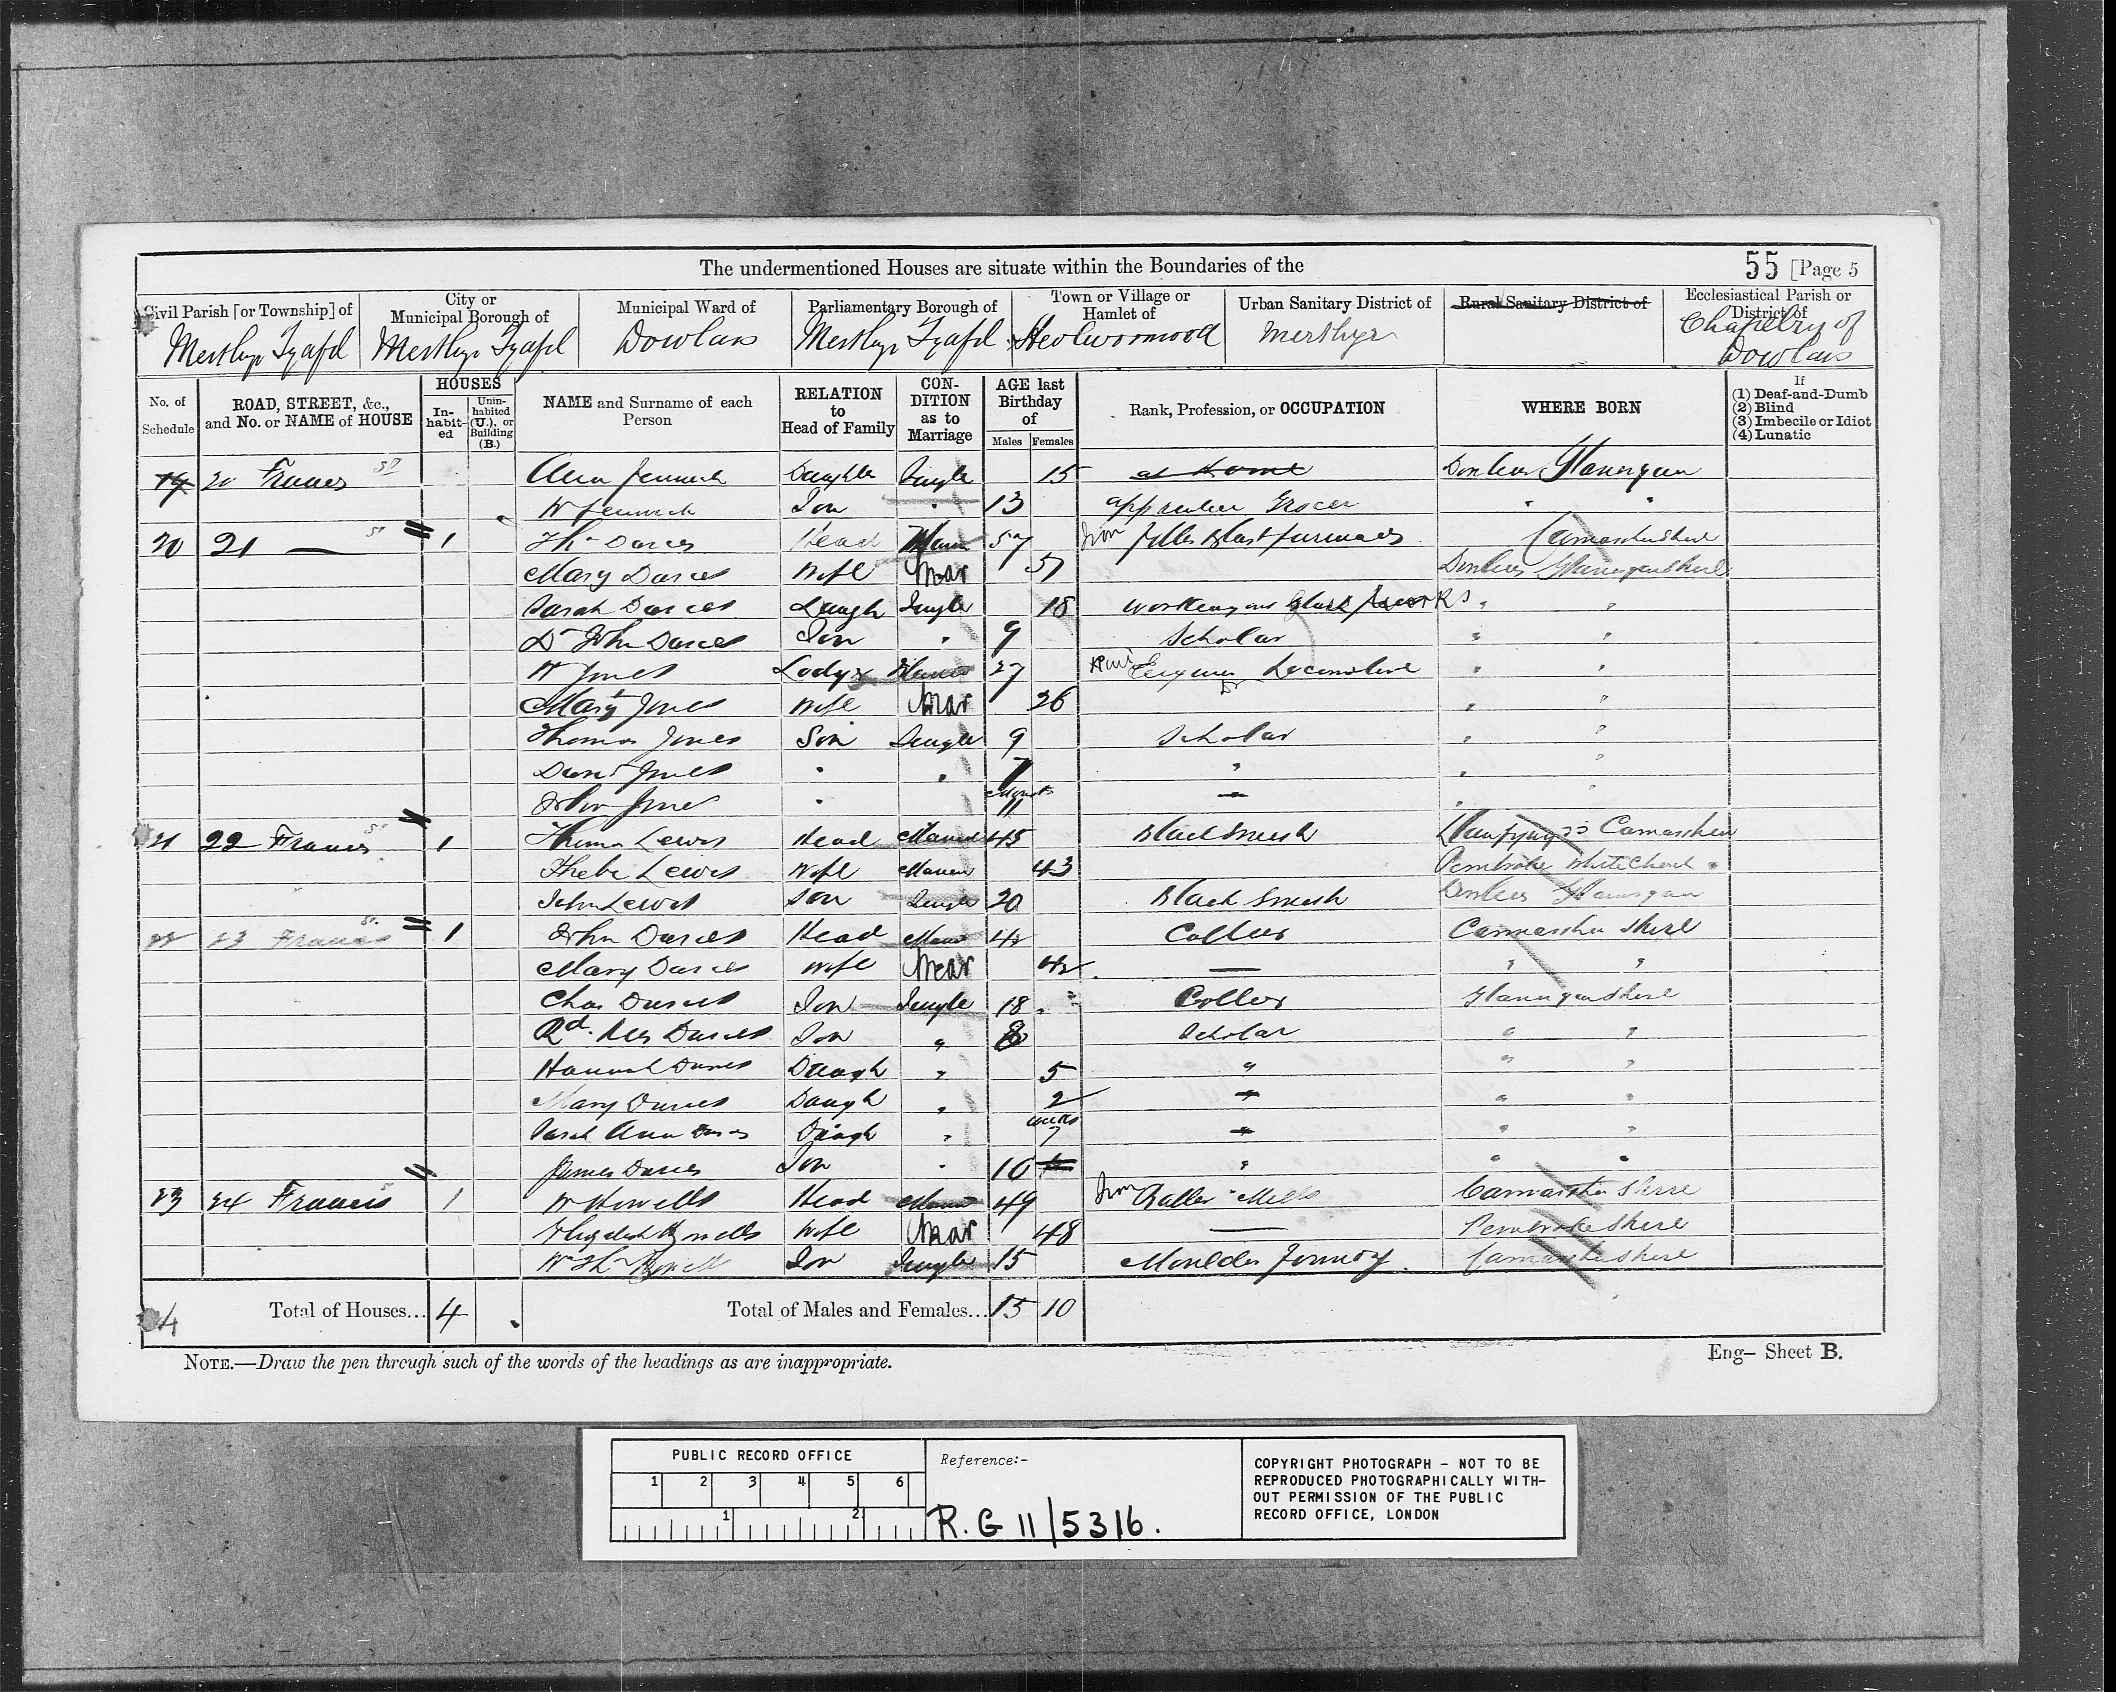 The undermentioned Houses are situate within the Boundaries of the 55 [Page 5
Civil Parish [or Township] of City or Municipal Borough of Municipal Ward of Parliamentary Borough of Town or Village or Hamlet of Urban Sanitary District of Rural Sanitary District of Ecclesiastical Parish or District of
Merthyr Tydfil Merthyr Tydfil Dowlais Merthyr Tydfil Heolwormwood Merthyr Chapelry of Dowlais
No. of Schedule ROAD, STREET, &c., and No. or NAME of HOUSE HOUSES In-habit-ed Unin-habited (U.), or Building (B.) NAME and Surname of each Person RELATION to Head of Family CON-DITION as to Marriage AGE last Birthday of Males Females Rank, Profession, or OCCUPATION WHERE BORN If (1) Deaf-and-Dumb (2) Blind (3) Imbecile or Idiot (4) Lunatic
19 20 Frances St Ann Daughter Single 15 at Home Dowlais Glamorgan
W Son " 13 Grocer " "
20 21 — St 1 Thos Davies Head Marr 57 Iron Filler Blast furnaces Carmarthenshire
Mary Davies Wife Mar 51 Dowlais Glamorganshire
Sarah Davies Daugh Single 18 " "
Dd John Davies Son " 9 Scholar " "
W Jones Lodger 27 Engine Dr Locomotive " "
Mary Jones Wife Mar 26 " "
Thomas Jones Son Single 9 Scholar " "
David Jones " " 7 " " "
John Jones " Months 11 " " "
21 22 Francis St 1 Thomas Lewis Head Married 45 Blacksmith Carmarthen
Phebe Lewis Wife 43 Pembroke
John Lewis Son Single 20 Black Smith Dowlais Glamorgan
22 23 Frances St. 1 John Davies Head 42 Collier Carmarthen Shire
Mary Davies Wife Mar 42 — " "
Chas Davies Son Single 18 Collier Glamorganshire
Rd. Rees Davies Son " 8 Scholar " "
Hannah Davies Daugh " 5 " " "
Mary Davies Daugh " 2 " " "
Sarah Ann Davies Daugh " weeks 7 " " "
James Davies Son " 10 " " "
23 24 Francis 1 W Howells Head 49 Iron Mills Carmarthen Shire
Howells Wife Mar 48 — Pembrokeshire
Wm Thos Howell Son Single 15 Moulder Foundry. Carmarthenshire
4 Total of Houses... 4 Total of Males and Females... 15 10
NOTE.—Draw the pen through such of the words of the headings as are inappropriate. Eng- Sheet B.
PUBLIC RECORD OFFICE
1 2 3 4 5 6
1 2
Reference:-
R.G 11/5316.
COPYRIGHT PHOTOGRAPH - NOT TO BE
REPRODUCED PHOTOGRAPHICALLY WITH-
OUT PERMISSION OF THE PUBLIC
RECORD OFFICE, LONDON